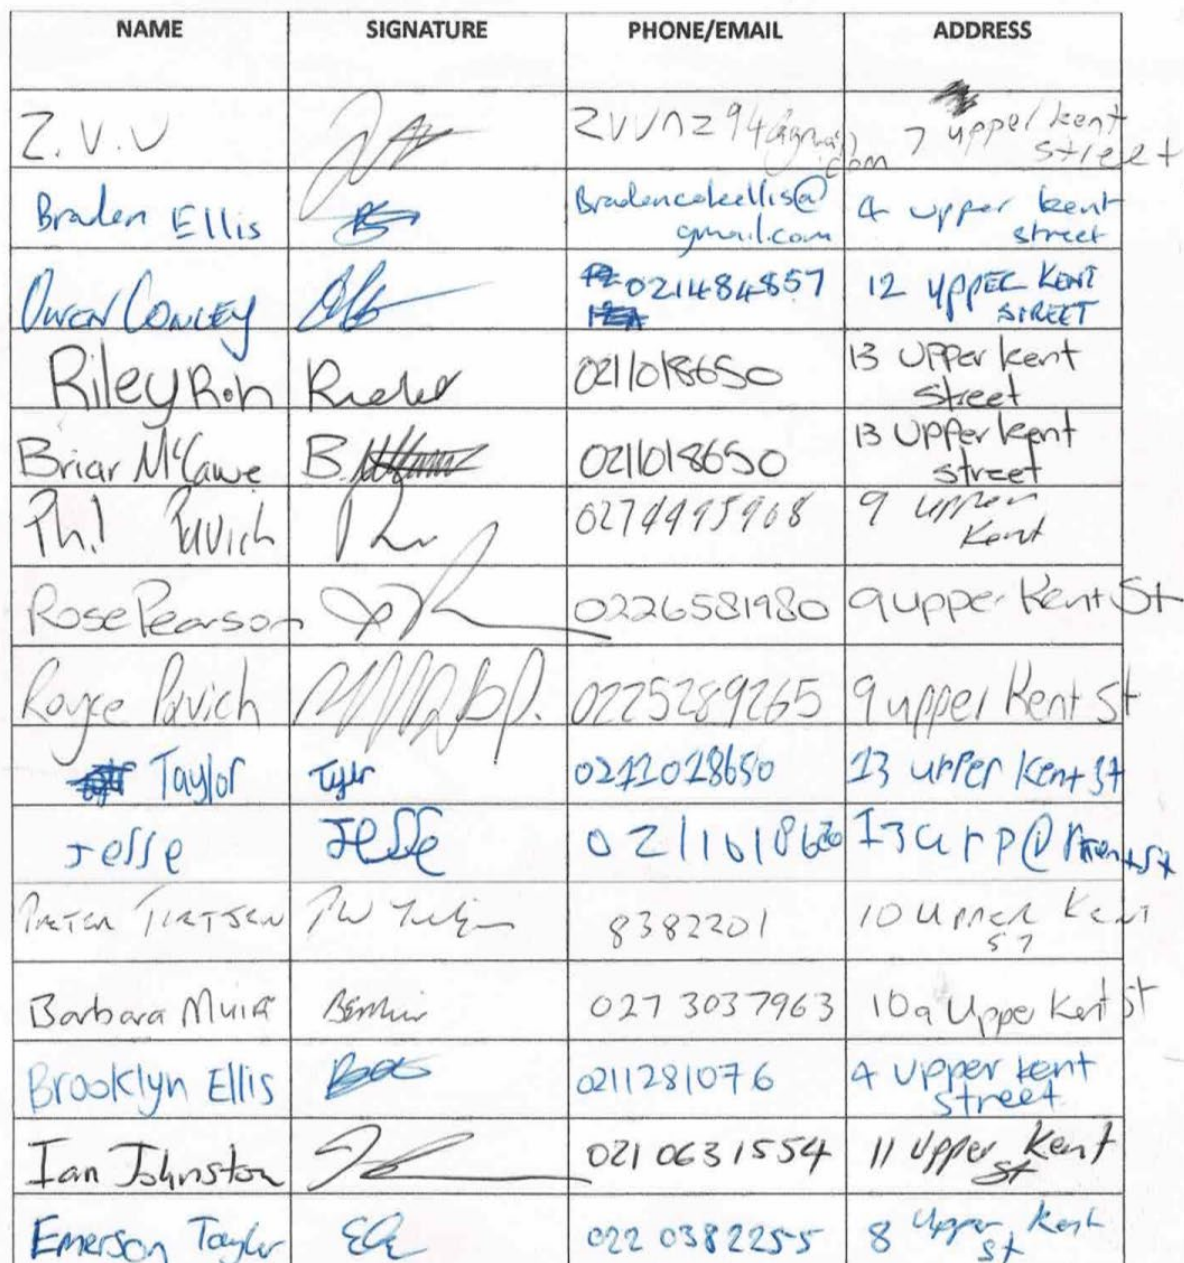 NAME SIGNATURE PHONE/EMAIL ADDRESS
Z.V.U zvvnz94@gmail.com 7 upper kent
street
Braden Ellis Bradencoleellis@ 4 upper kent
gmail.com street
Owen Conley 021484857 12 UPPER KENT
STREET
Riley Roh 0211018650 13 Upper kent
street
Briar McCawe B. 0211018650 13 Upper kent
street
Phil Pavich 0274495908 9 upper
Kent
Rose Pearson 0226581980 9 upper Kent St
Royce Pavich 0225289265 9 upper Kent St
Taylor Tylr 0211018650 13 upper Kent St
Jesse Jesse 0211018650
PETER TIETJEN 8382201 10 Upper Kent
ST
Barbara Muir BEMuir 027 3037963 10a Upper Kent St
Brooklyn Ellis 0211281076 4 Upper kent
street
Ian Johnston 021 0631554 11 Upper Kent
St
Emerson Taylor 022 0382255 8 Upper Kent
st